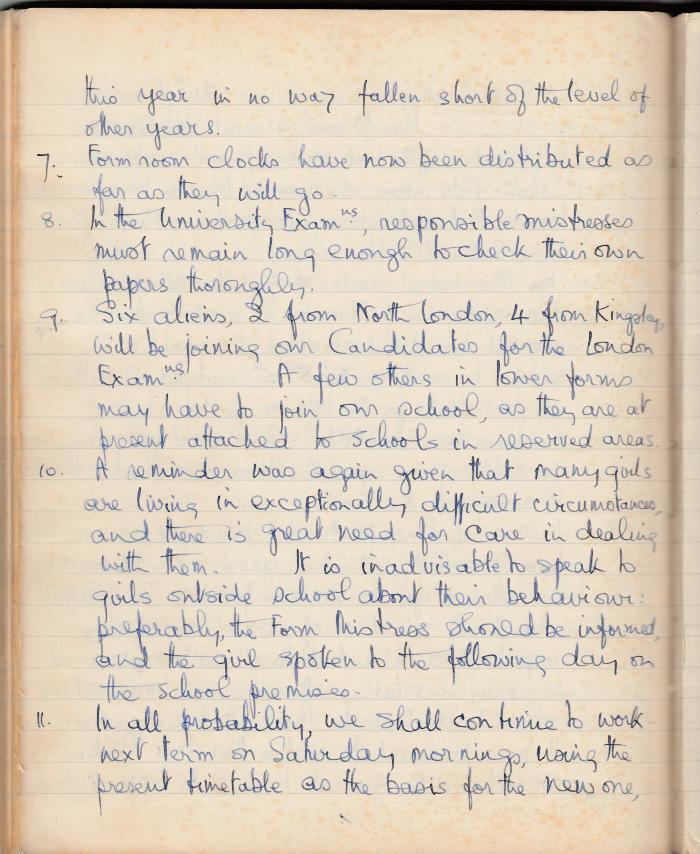 this year in no way fallen short of the level of
other years.
7. Form room clocks have now been distributed as
far as they will go.
8. In the University Exam^ns, responsible mistresses
must remain long enough to check their own
papers thoroughly.
9. Six aliens, 2 from North London, 4 from Kingsley,
will be joining our Candidates for the London
Exam^ns. A few others in lower forms
may have to join our school, as they are at
present attached to schools in reserved areas.
10. A reminder was again given that many girls
are living in exceptionally difficult circumstances,
and there is great need for care in dealing
with them. It is inadvisable to speak to
girls outside school about their behaviour:
preferably, the Form Mistress should be informed,
and the girl spoken to the following day on
the school premises.
11. In all probability, we shall continue to work
next term on Saturday mornings, using the
present timetable as the basis for the new one,